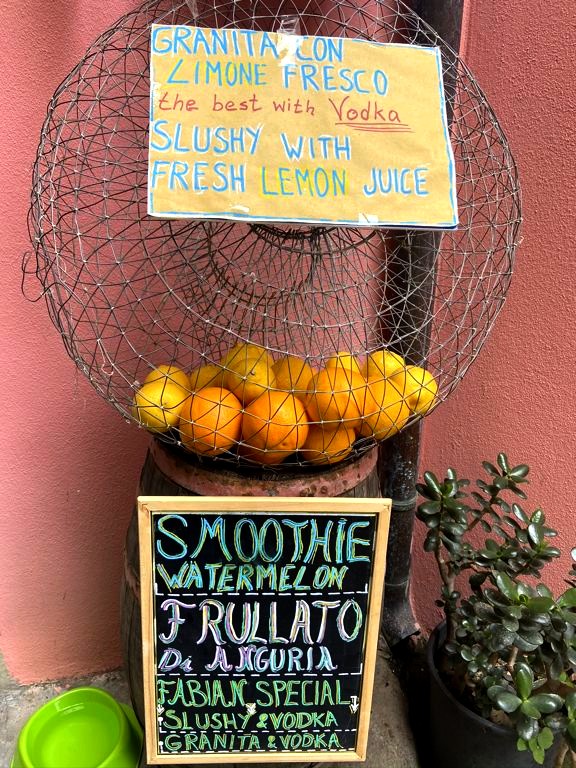 GRANITA CON
LIMONE FRESCO
the best with Vodka
SLUSHY WITH
FRESH LEMON JUICE
SMOOTHIE
WATERMELON
FRULLATO
Di ANGURIA
FABIAN SPECIAL
SLUSHY & VODKA
GRANITA & VODKA